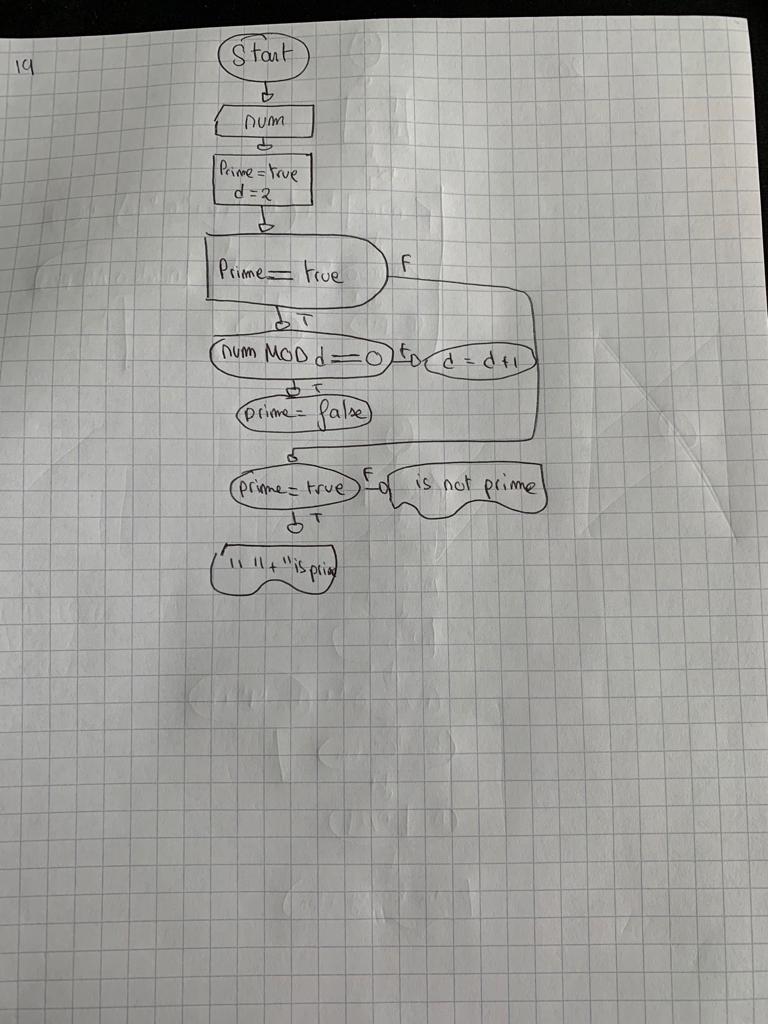 19
Start
num
Prime = true
d = 2
Prime == true
F
T
num MOD d == 0
F
d = d+1
T
prime = false
prime = true
F
is not prime
T
" " + "is prime